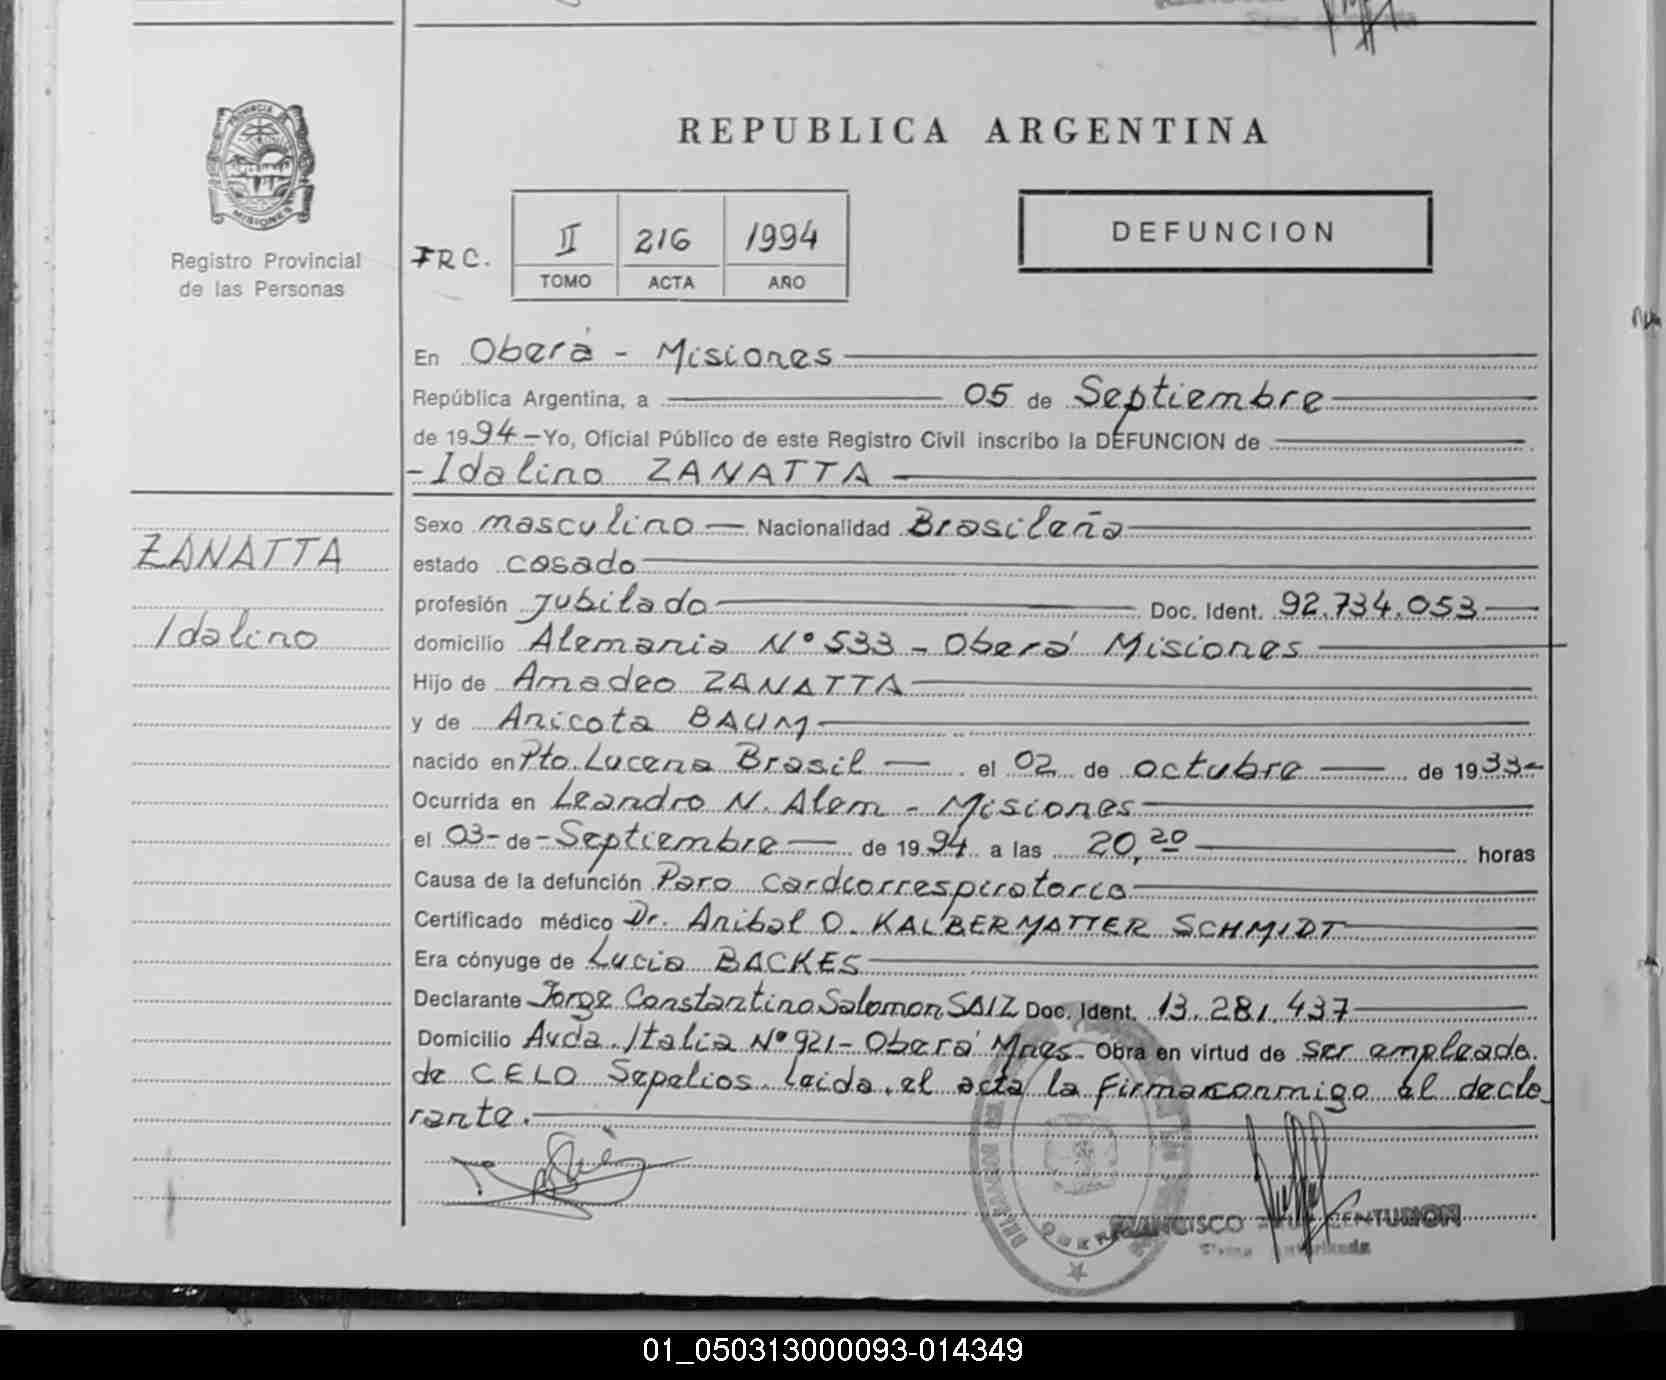 PROVINCIA DE
MISIONES
Registro Provincial
de las Personas
REPUBLICA ARGENTINA
FRC.
II 216 1994
TOMO ACTA AÑO
DEFUNCION
En Oberá - Misiones
República Argentina, a 05 de Septiembre
de 1994 - Yo, Oficial Público de este Registro Civil inscribo la DEFUNCION de
- Idalino ZANATTA
ZANATTA
Idalino
Sexo masculino Nacionalidad Brasileña
estado casado
profesión Jubilado Doc. Ident. 92.734.053
domicilio Alemania N° 533 - Oberá Misiones
Hijo de Amadeo ZANATTA
y de Anicota BAUM
nacido en Pto. Lucena Brasil el 02 de octubre de 1933-
Ocurrida en Leandro N. Alem - Misiones
el 03 - de - Septiembre de 1994 a las 20,20 horas
Causa de la defunción Paro cardiorrespiratorio
Certificado médico Dr. Anibal O. KALBERMATTER SCHMIDT
Era cónyuge de Lucia BACKES
Declarante Jorge Constantino Salomon SAIZ Doc. Ident. 13.281.437
Domicilio Avda. Italia N° 921 - Oberá Mnes. Obra en virtud de ser empleado
de CELO Sepelios. Leida el acta la firma conmigo el decla
rante.
FRANCISCO CENTURION
Firma Autorizada
01_050313000093-014349